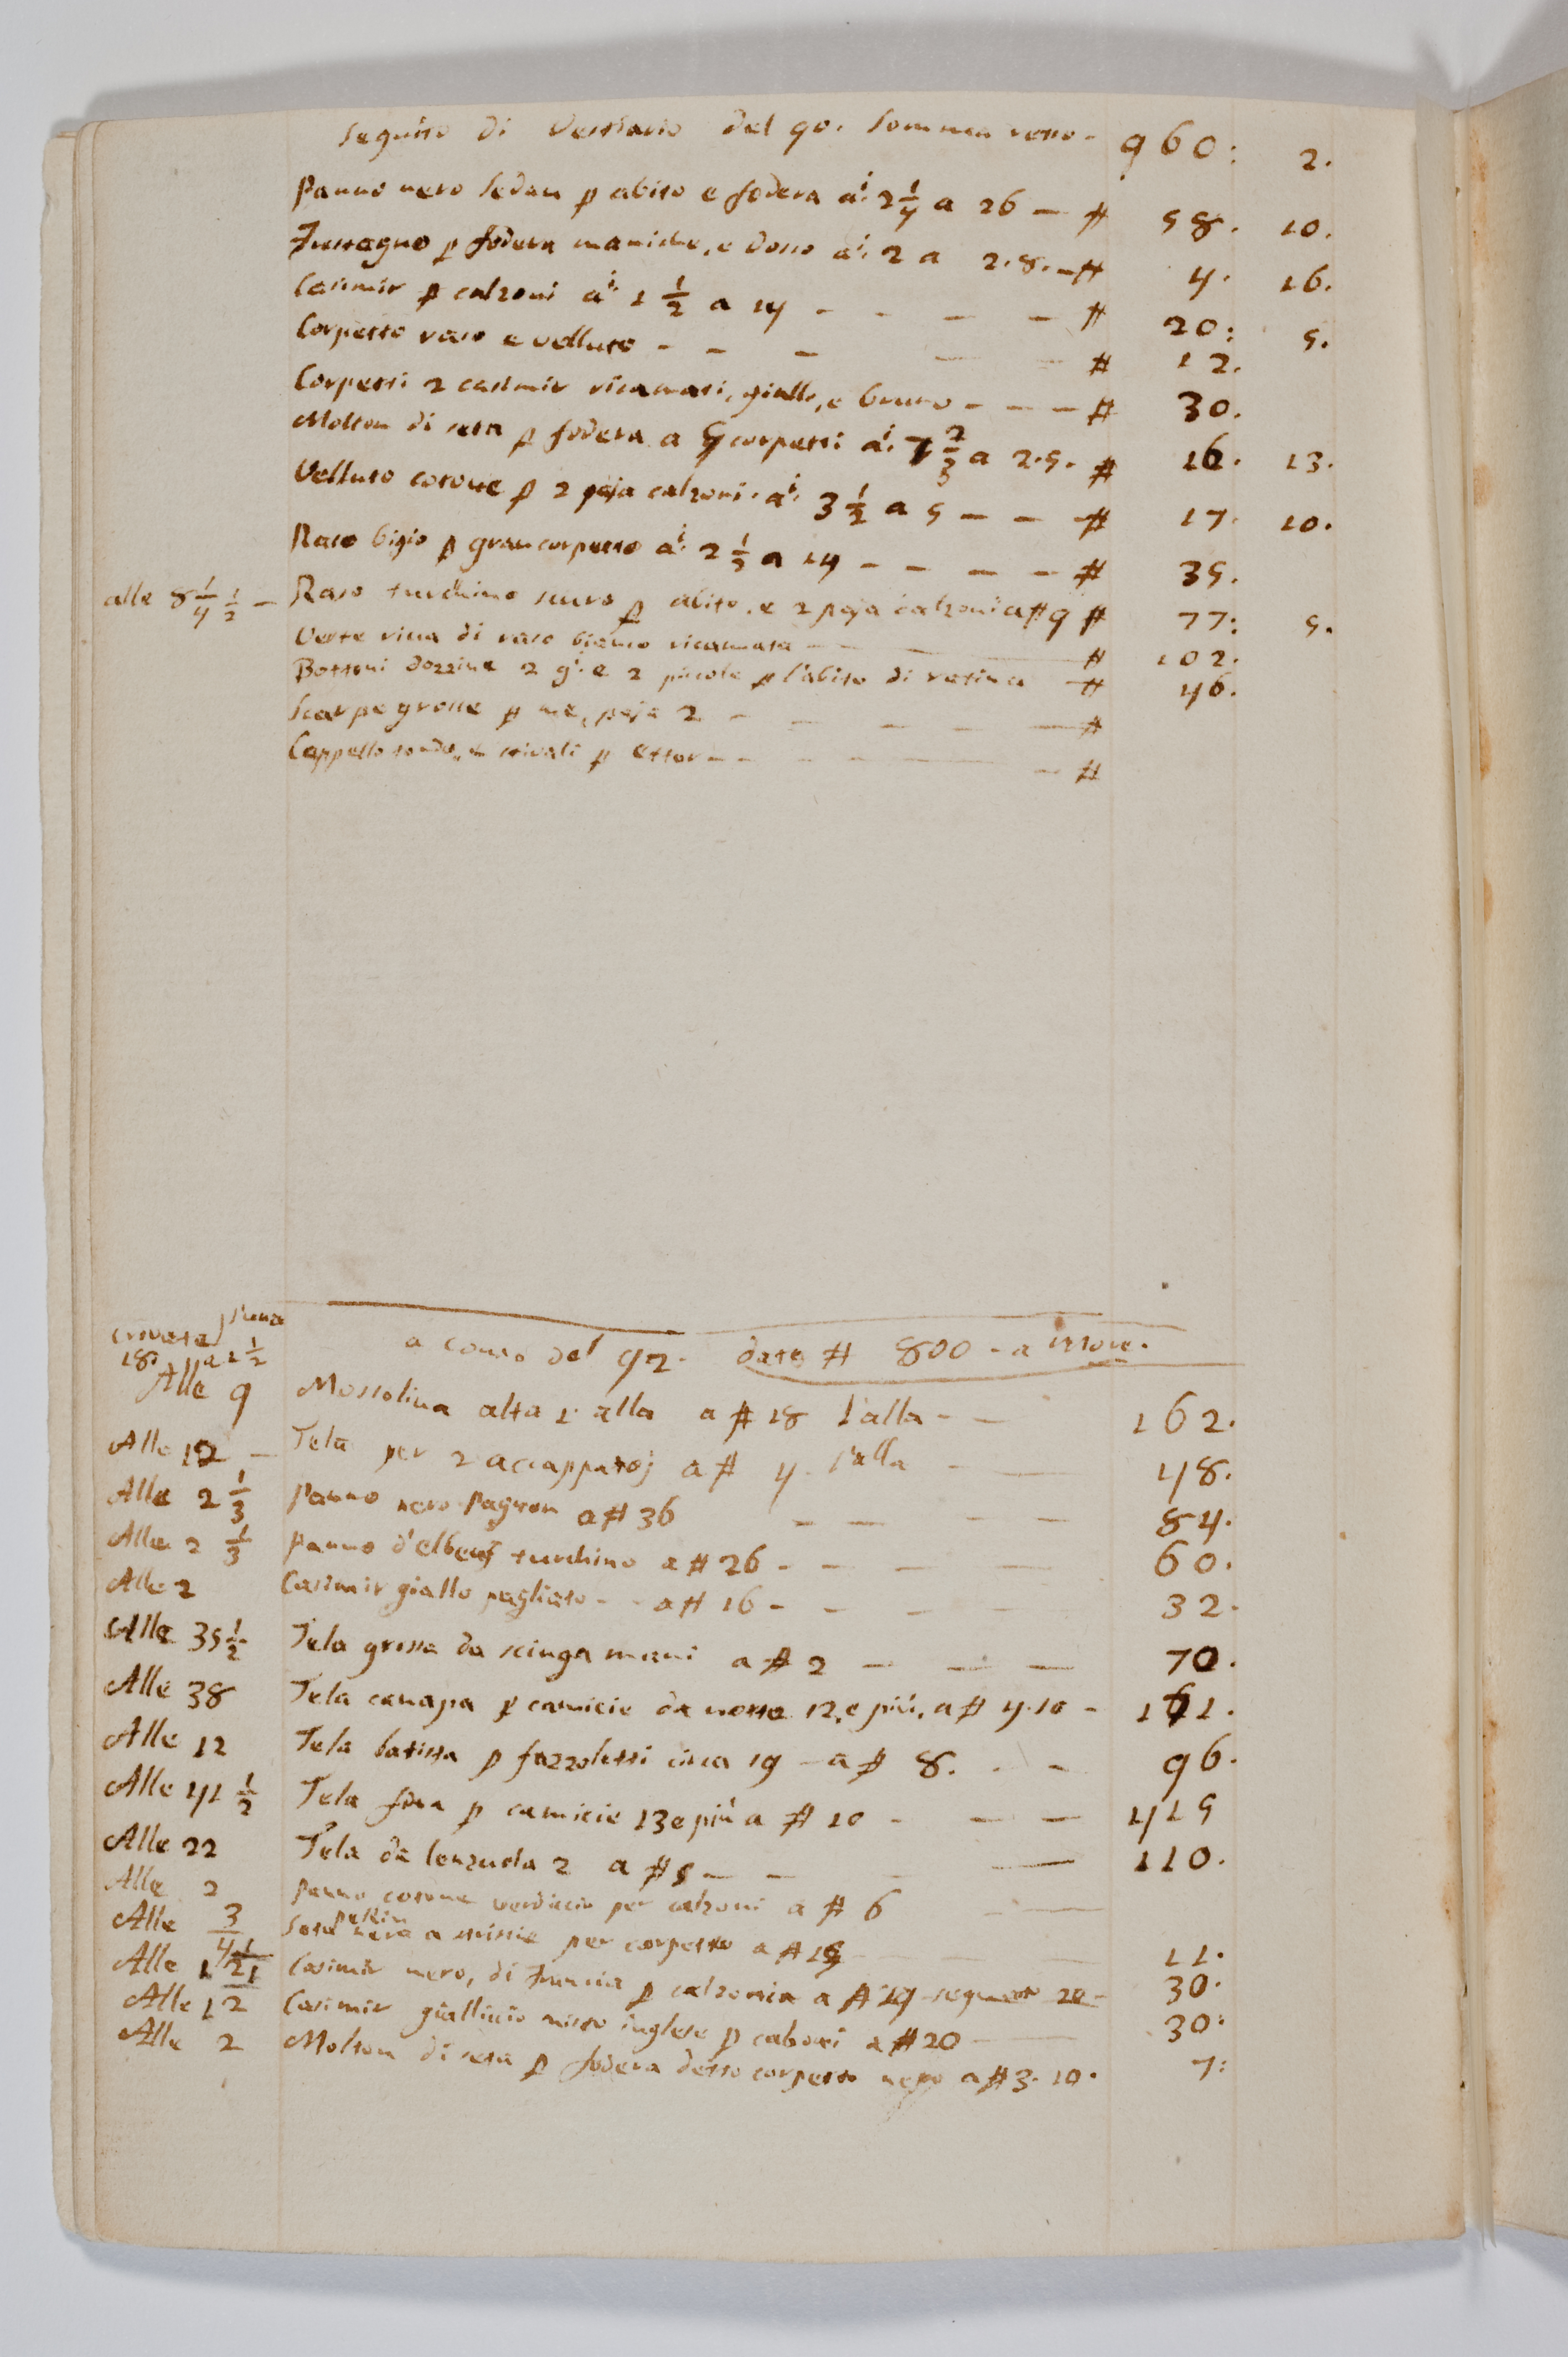 Seguito di Vestiario del 90. Somma retro - 960: 2.
Panno nero Sedan p abito e fodera a.i 2 1/4 a 26 — # 58. 10.
Fustagno p fodera maniche, e dosso a.i 2 a 2.8. — # 4. 16.
Casimir p calzoni a.i 1 1/2 a 14 - - — — # 20: 5.
Corpetto raso e velluto - - — — — # 12.
Corpetti 2 casimir ricamati, giallo, e bruno - — — # 30.
Molton di seta p fodera a 5 corpetti a.i 7 2/3 a 2.5. # 16. 13.
Velluto cotone p 2 paja calzoni. a.i 3 1/2 a 5 — — — # 17. 10.
Raso bigio p gran corpetto a.i 2 1/2 a 14 — — — — # 35.
alle 8 1/4 1/2 — Raso turchino scuro p abito, e 2 paja calzoni a # 9 # 77: 5.
Veste ricca di raso bianco ricamata — — # 102.
Bottoni dozzine 2 g.i e 2 piccole p l'abito di ratina — # 46.
Scarpe grosse p me, paja 2 - — — — #
Cappello tondo, e stivali p Ettor - - — — #
a conto del 92. dato # 800 - a
Alle 9 Mossolina alta 1 alla a # 18 l'alla - — 162.
Alle 12 — Tela per 2 accappatoj a # 4. l'alla — — 48.
Alle 2 1/3 Panno nero Pagnon a # 36 — — - — 84.
Alle 2 1/3 Panno d'Elbeuf turchino a # 26 - — — — 60.
Alle 2 Casimir giallo pagliato - - a # 16 - - — — 32.
Alle 35 1/2 Tela grossa da sciugamani a # 2 — — — 70.
Alle 38 Tela canapa p camicie da notte 12, e più, a # 4.10 - 171.
Alle 12 Tela batista p fazzoletti circa 19 — a # 8. . - 96.
Alle 41 1/2 Tela fina p camicie 13 e più a # 10 - — — 415
Alle 22 Tela da lenzuola 2 a # 5 — — - — 110.
Alle 2 Panno cotone verdiccio per calzoni a # 6 - —
Alle 3/4 Seta pekin nera a striscie per corpetto a # 15 — — 11.
Alle 1 1/2 Casimir nero, di Francia p calzoni a # 19 20 - 30.
Alle 1 1/2 Casimir gialliccio misto inglese p calzoni a # 20 — 30:
Alle 2 Molton di seta p fodera detto corpetto nero a # 3. 10. 7: